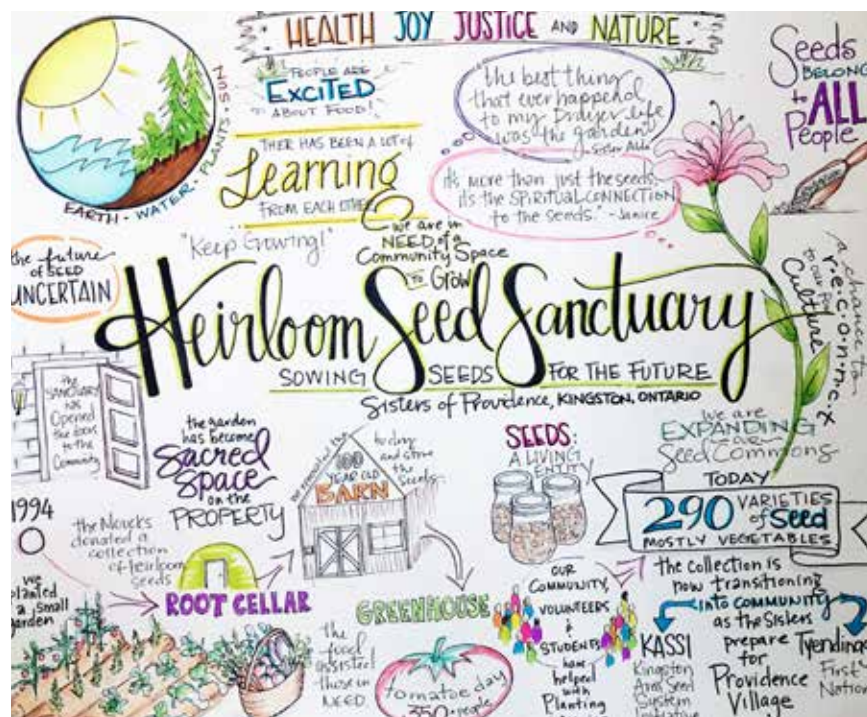 HEALTH JOY JUSTICE AND NATURE
EARTH • WATER • PLANTS • SUN
PEOPLE ARE
EXCITED
ABOUT FOOD!
THER HAS BEEN A LOT of
Learning
FROM EACH OTHER
the best thing
that ever happend
to my prayer life
was the garden
it's more than just the seeds,
its the SPIRITUAL CONNECTION
to the seeds." -Janice
Seeds
BELONG
to ALL
People
"Keep Growing!"
we are in
NEED of a
Community Space
TO Grow
the future
of SEED
UNCERTAIN
Heirloom Seed Sanctuary
SOWING SEEDS FOR THE FUTURE
Sisters of Providence, KINGSTON, ONTARIO
r.e.c.o.n.n.e.c.t
Culture
the
SANCTUARY
has
Opened
the doors
to the
Community
the garden
has become
Sacred
Space
on the
PROPERTY
100
YEAR OLD
BARN
to dry
and store
the
Seeds
SEEDS:
A LIVING
ENTITY
we are
EXPANDING
our
Seed Commons
TODAY
290 VARIETIES
of Seed
MOSTLY VEGETABLES
1994
we
planted
a small
garden
the Mowcks
donated a
collection
of heirloom
seeds
ROOT CELLAR
the
food
assisted
those in
NEED
GREENHOUSE
tomatoe day
350 people
OUR
COMMUNITY,
VOLUNTEERS
&
STUDENTS
have
helped
with
Planting
the collection is
now transitioning
into COMMUNITY
as the Sisters
prepare
for
Providence
Village
KASSI
Kingston
Area Seed
System
Initiative
Tyendina
First
Nation